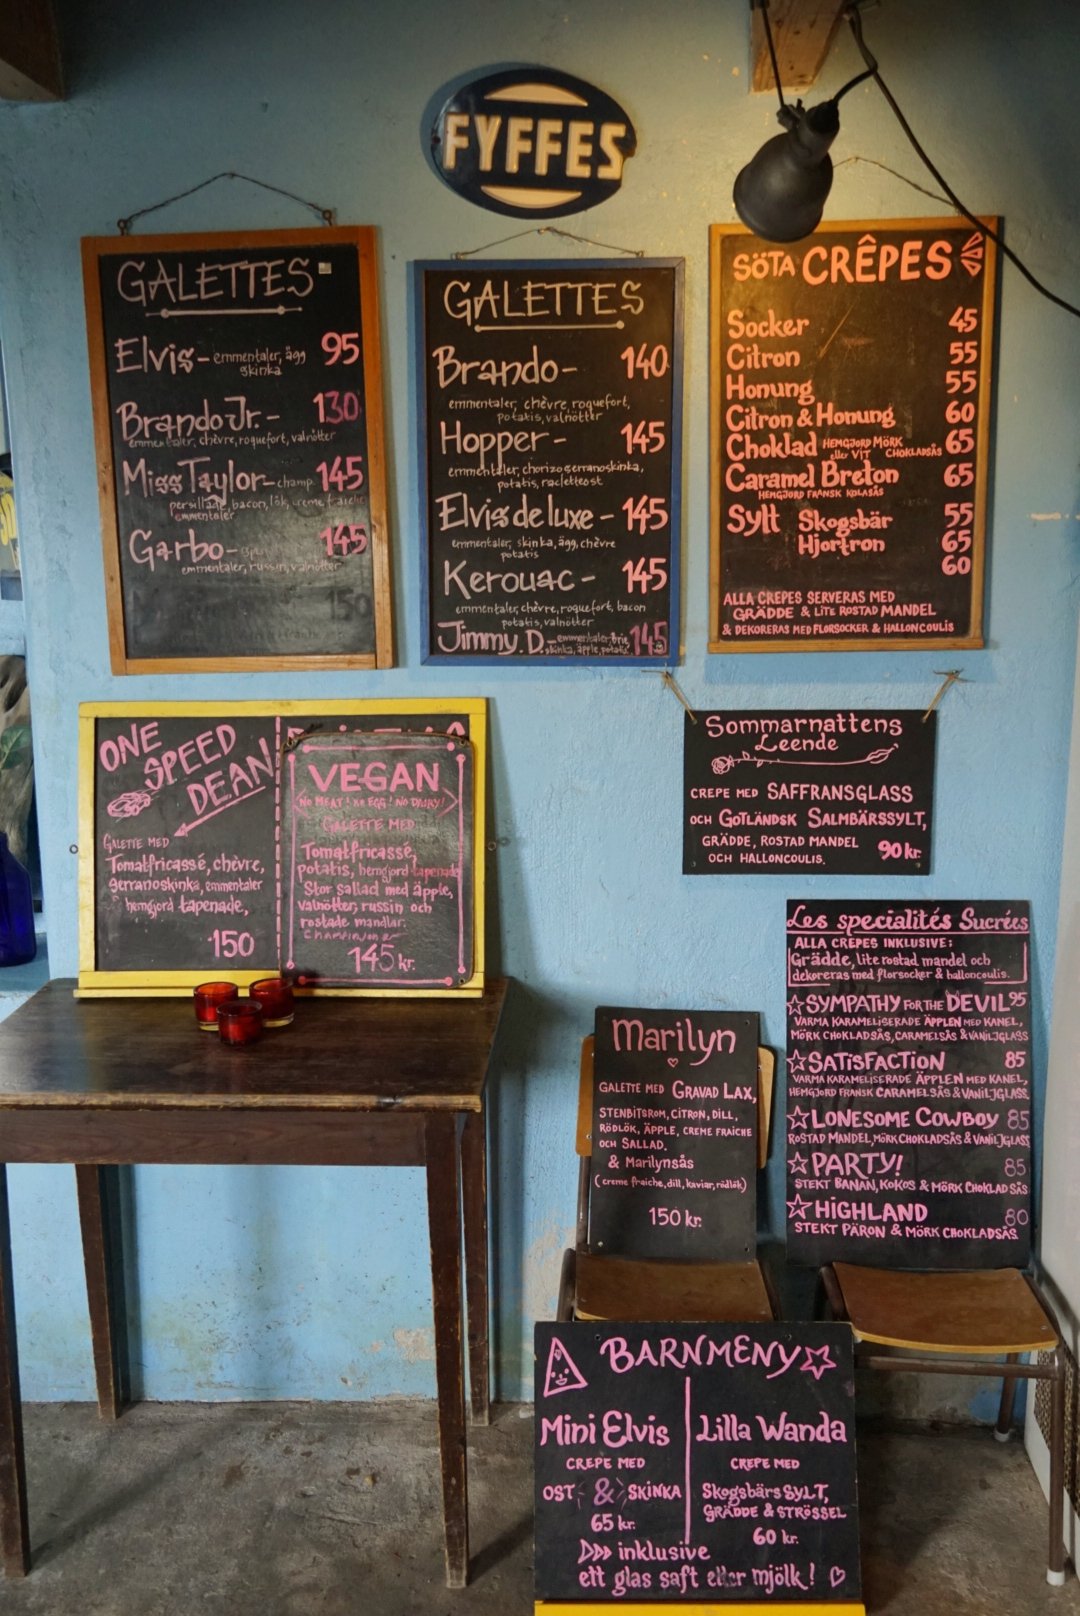 FYFFES
GALETTES
Elvis - emmentaler, ägg 95
skinka
Brando Jr. - 130
emmentaler, chèvre, roquefort, valnötter
Miss Taylor - champ. 145
persillade, bacon, lök, creme fraiche
emmentaler
Garbo - 145
emmentaler, russin, valnötter
150
GALETTES
Brando - 140
emmentaler, chèvre, roquefort,
potatis, valnötter
Hopper - 145
emmentaler, chorizo serranoskinka,
potatis, racletteost
Elvis de luxe - 145
emmentaler, skinka, ägg, chèvre
potatis
Kerouac - 145
emmentaler, chèvre, roquefort, bacon
potatis, valnötter
Jimmy D. - emmentaler, brie, 145
skinka, äpple, potatis
SÖTA CRÊPES
Socker 45
Citron 55
Honung 55
Citron & Honung 60
Choklad HEMGJORD MÖRK 65
eller VIT CHOKLADSÅS
Caramel Breton 65
HEMGJORD FRANSK KOLASÅS
Sylt Skogsbär 55
Hjortron 65
60
ALLA CREPES SERVERAS MED
GRÄDDE & LITE ROSTAD MANDEL
& DEKORERAS MED FLORSOCKER & HALLONCOULIS
ONE
SPEED
DEAN
GALETTE MED
Tomatfricassé, chèvre,
serranoskinka, emmentaler
& hemgjord tapenade,
150
VEGAN
NO MEAT! NO EGG! NO DAIRY!
GALETTE MED
Tomatfricassé,
potatis, hemgjord tapenade
Stor sallad med äpple,
valnötter, russin och
rostade mandlar.
Champinjoner
145 kr.
Sommarnattens
Leende
CREPE MED SAFFRANSGLASS
OCH GOTLÄNDSK SALMBÄRSSYLT,
GRÄDDE, ROSTAD MANDEL
OCH HALLONCOULIS. 90 kr.
Les specialités Sucrées
ALLA CREPES INKLUSIVE:
Grädde, lite rostad mandel och
dekoreras med florsocker & halloncoulis.
SYMPATHY FOR THE DEVIL 95
VARMA KARAMELISERADE ÄPPLEN MED KANEL,
MÖRK CHOKLADSÅS, CARAMELSÅS & VANILJGLASS
SATISFACTION 85
VARMA KARAMELISERADE ÄPPLEN MED KANEL,
HEMGJORD FRANSK CARAMELSÅS & VANILJGLASS.
LONESOME COWBOY 85
ROSTAD MANDEL, MÖRK CHOKLADSÅS & VANILJGLASS
PARTY! 85
STEKT BANAN, KOKOS & MÖRK CHOKLADSÅS
HIGHLAND 80
STEKT PÄRON & MÖRK CHOKLADSÅS.
Marilyn
GALETTE MED GRAVAD LAX,
STENBITSROM, CITRON, DILL,
RÖDLÖK, ÄPPLE, CREME FRAICHE
OCH SALLAD.
& Marilynsås
(creme fraiche, dill, kaviar, rödlök)
150 kr.
BARNMENY
Mini Elvis
CREPE MED
OST & SKINKA
65 kr.
Lilla Wanda
CREPE MED
Skogsbärs SYLT,
GRÄDDE & STRÖSSEL
60 kr.
inklusive
ett glas saft eller mjölk!